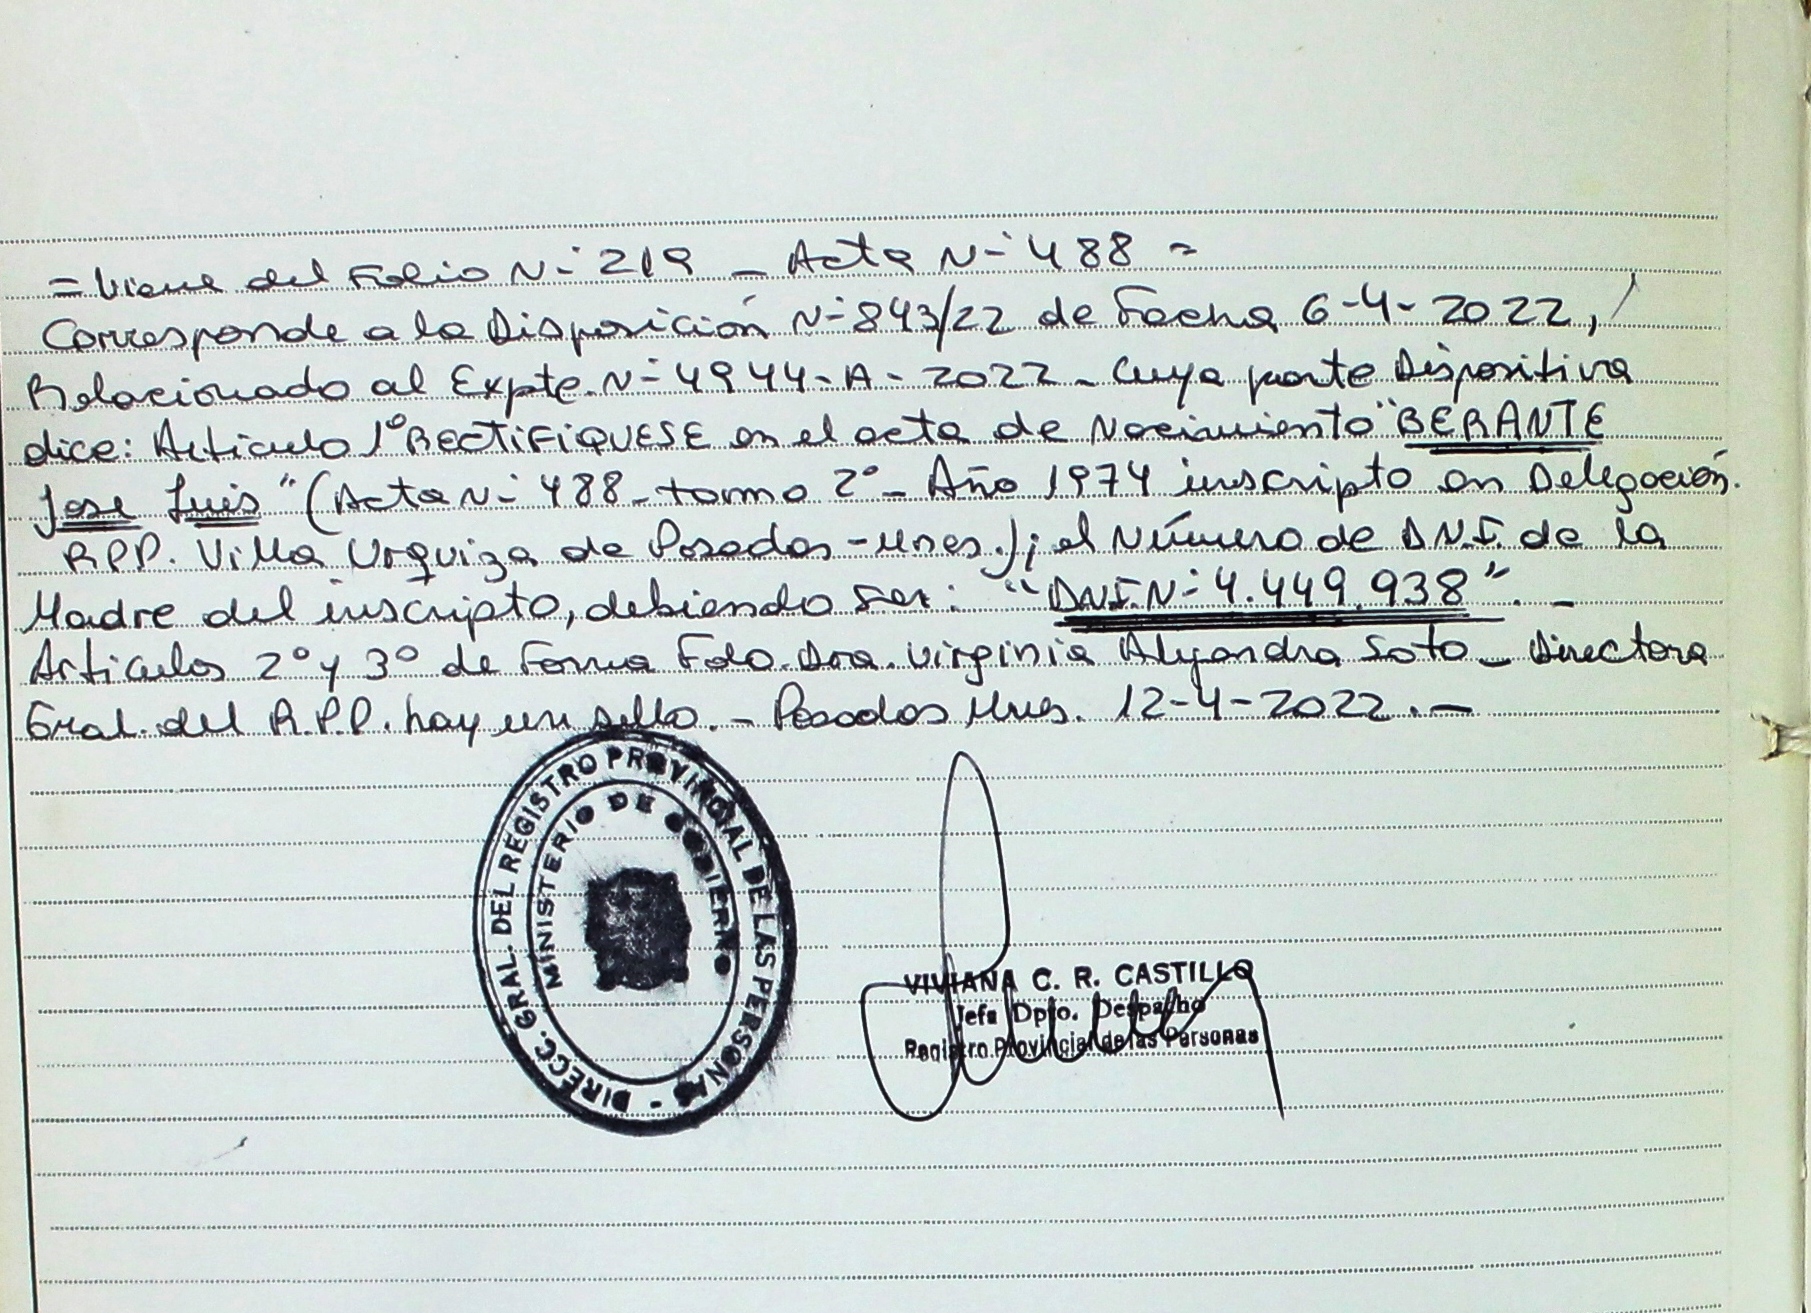 = Viene del Folio N-° 219 - Acta N-° 488 =
Corresponde a la Disposición N-° 843/22 de Fecha 6-4-2022, /
Relacionado al Expte. N-° 4944-A-2022 - Cuya parte Dispositiva
dice: Articulo 1° RECTIFIQUESE en el acta de Nacimiento "BERANTE
Jose Luis" (Acta N-° 488 - tomo 2° - Año 1974 inscripto en Delegación.
RPP. Villa Urquiza de Posadas - Mnes.); el Número de D.N.I. de la
Madre del inscripto, debiendo ser: "DNI. N-° 4.449.938". -
Articulos 2° y 3° de Forma Fdo. Dra. Virginia Alejandra Soto - Directora
Gral. del R.P.P. hay un sello. - Posadas Mnes. 12-4-2022. -
DIRECC. GRAL. DEL REGISTRO PROVINCIAL DE LAS PERSONAS -
MINISTERIO DE GOBIERNO
VIVIANA C. R. CASTILLO
Jefa Dpto. Despacho
Registro Provincial de las Personas